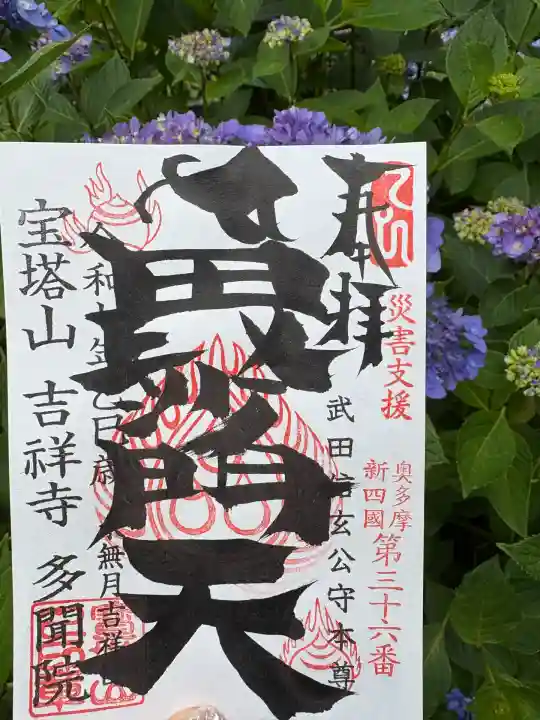 奉拝
災害支援
奥多摩
新四國
第三十六番
武田信玄公守本尊
毘沙門天
令和七年乙巳歳水無月吉祥日
宝塔山 吉祥寺 多聞院